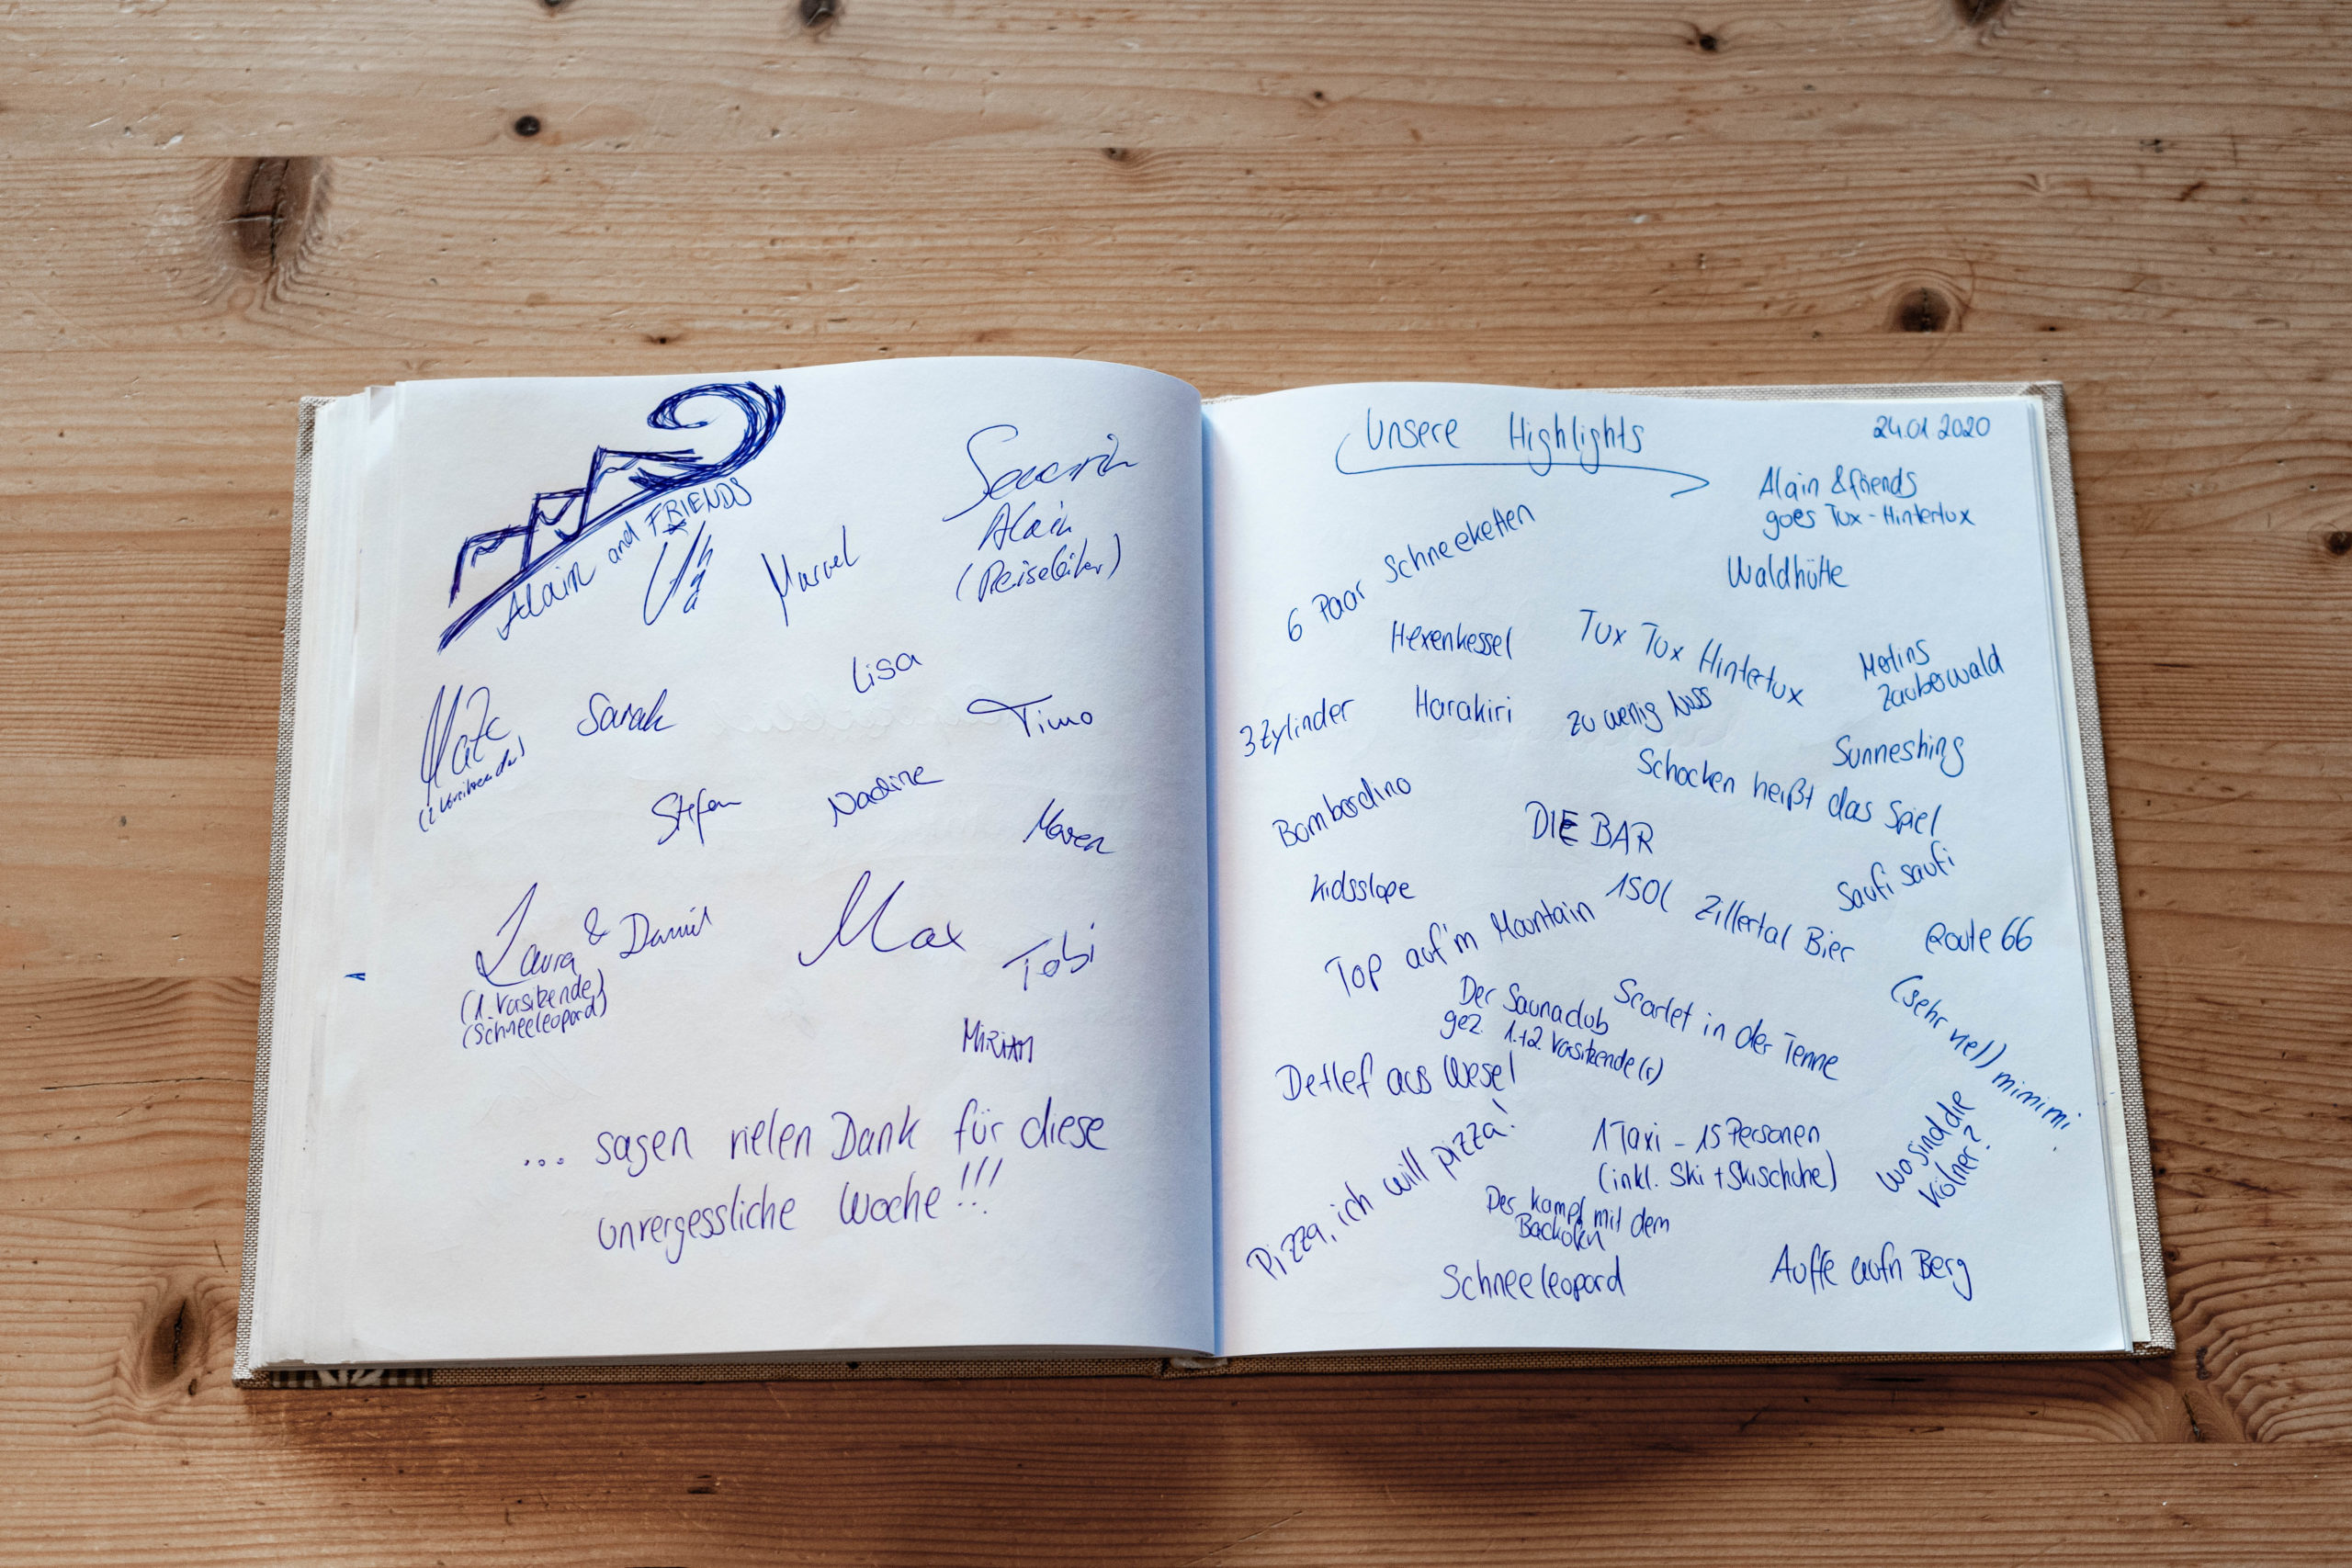 Alain and FRIENDS
Severin
Alain
(Reiseleiter)
Marcel
Lisa
Sarah
Timo
Stefan
Nadine
Maren
Laura & Daniel
(1. Vorsitzende)
(Schneeleopard)
Max
Tobi
MIRIAM
... sagen vielen Dank für diese
unvergessliche Woche!!!
Unsere Highlights
24.01.2020
Alain & friends
goes Tux-Hintertux
6 Paar Schneeketten
Waldhütte
Hexenkessel
Tux Tux Hintertux
Merlins
Zauberwald
3 Zylinder
Harakiri
zu wenig Nuss
Sunneshing
Schocken heißt das Spiel
Bombardino
DIE BAR
Kidsslope
150l Zillertal Bier
Saufi saufi
Top auf'm Mountain
Route 66
Der Saunaclub
gez. 1.+2. Vorsitzende(r)
Scarlet in der Tenne
(sehr viel) mimimi
Detlef aus Wesel
Pizza, ich will pizza!
1 Taxi - 15 Personen
(inkl. Ski + Skischuhe)
Wo sind die
Kölner?
Der Kampf mit dem
Backofen
Schneeleopard
Auffe aufn Berg